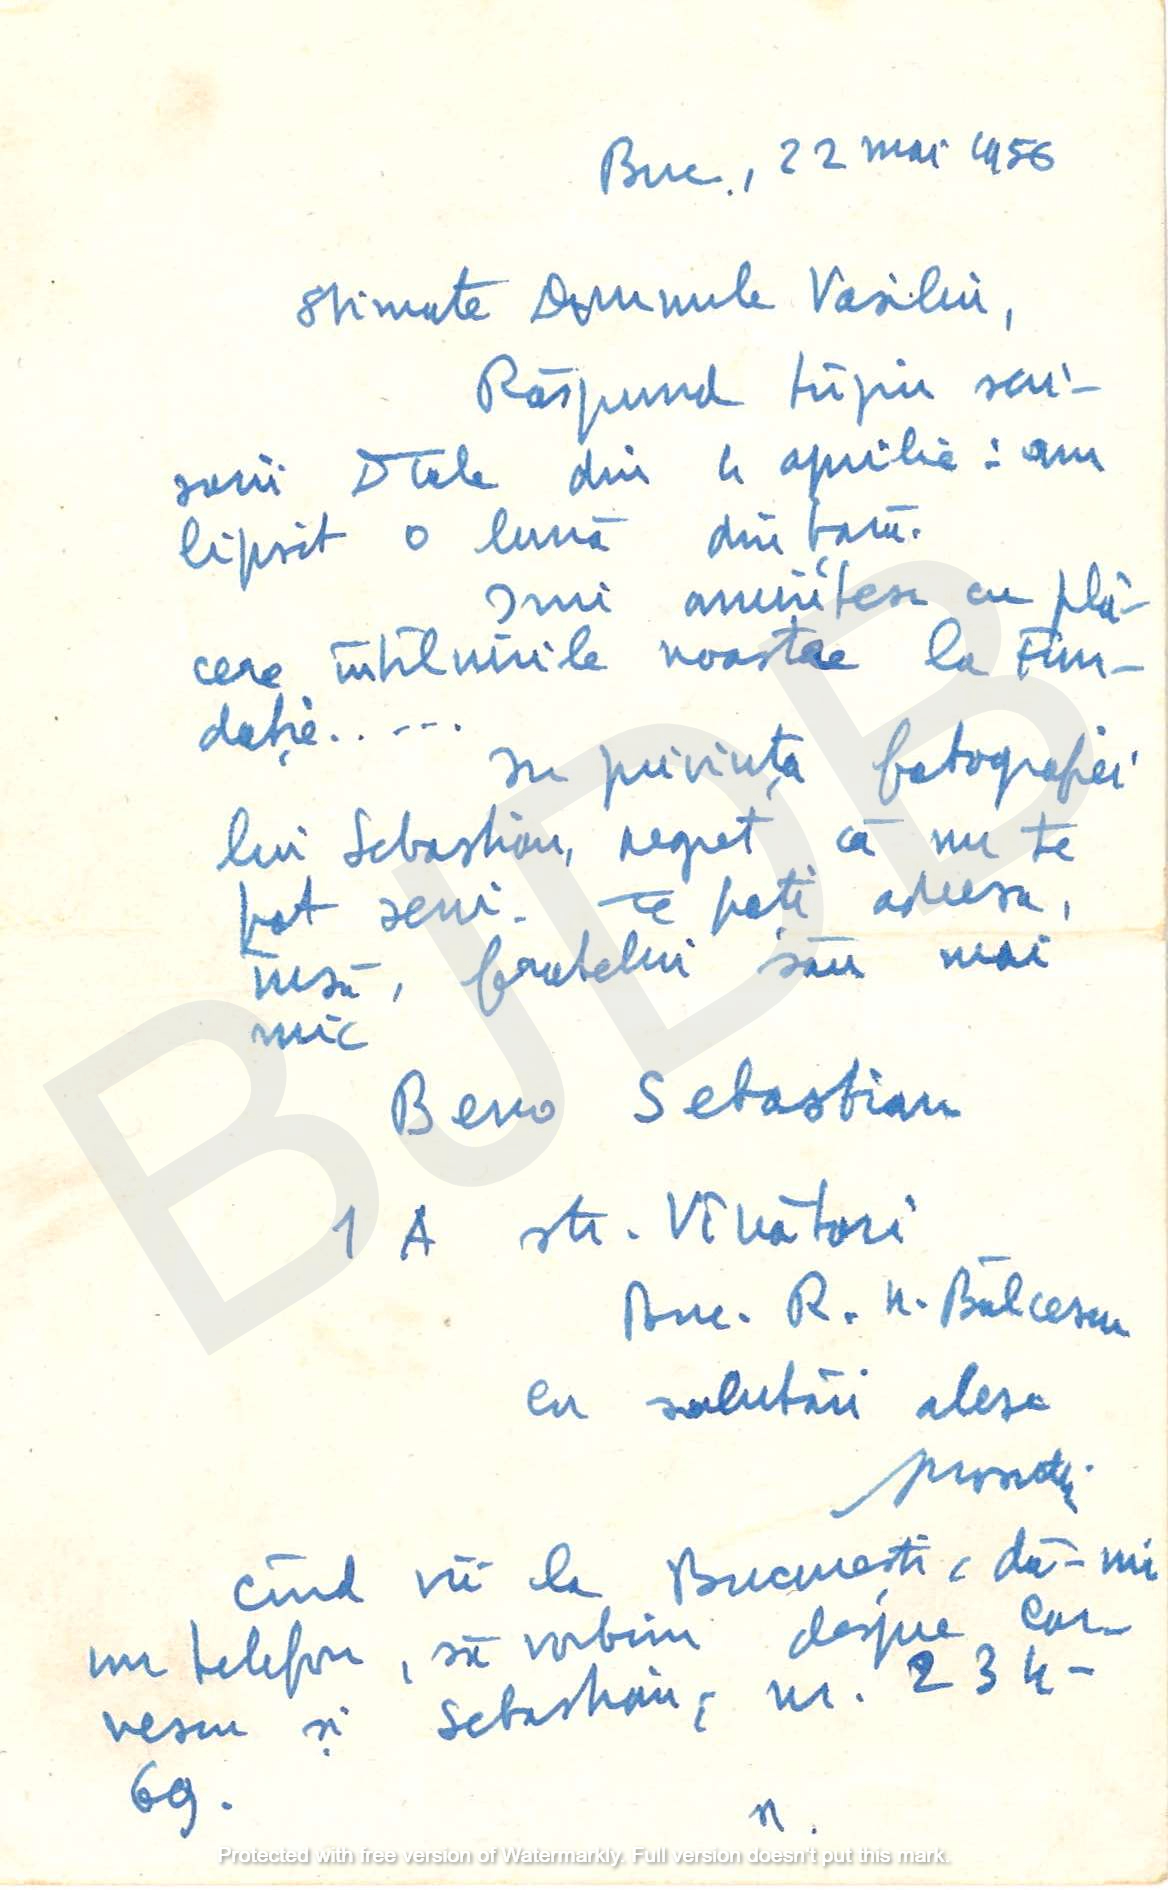 Buc., 22 mai 1956
Stimate Domnule Vasiliu,
Răspund tîrziu scri-
sorii Dtale din 4 aprilie: am
lipsit o lună din țară.
Îmi amintesc cu plă-
cere întîlnirile noastre la Fun-
dație.. ---.
În privința fotografiei
lui Sebastian, regret că nu te
pot servi. Te poți adresa,
însă, fratelui său mai
mic
Beno Sebastian
1 A str. Vînători
Buc. R. N. Bălcescu
Cu salutări alese
Cînd vii la București, dă-mi
un telefon, să vorbim despre Cor-
vescu și Sebastian, nr. 234-
69.
n.
BJDB
Protected with free version of Watermarkly. Full version doesn't put this mark.